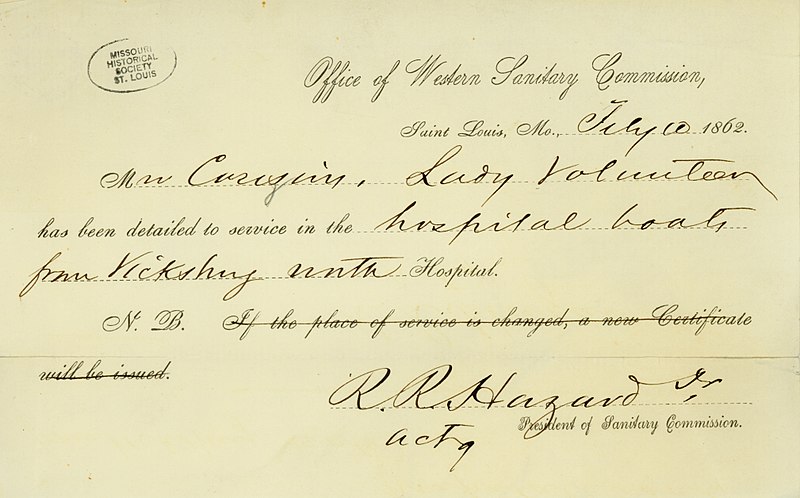 MISSOURI
HISTORICAL
SOCIETY
ST. LOUIS
Office of Western Sanitary Commission,
Saint Louis, Mo., 1862.
Lady Volunteer
has been detailed to service in the hospital boats
from Vicksburg north Hospital.
N. B. If the place of service is changed, a new Certificate
will be issued.
R. R. Hazard Jr
actg President of Sanitary Commission.